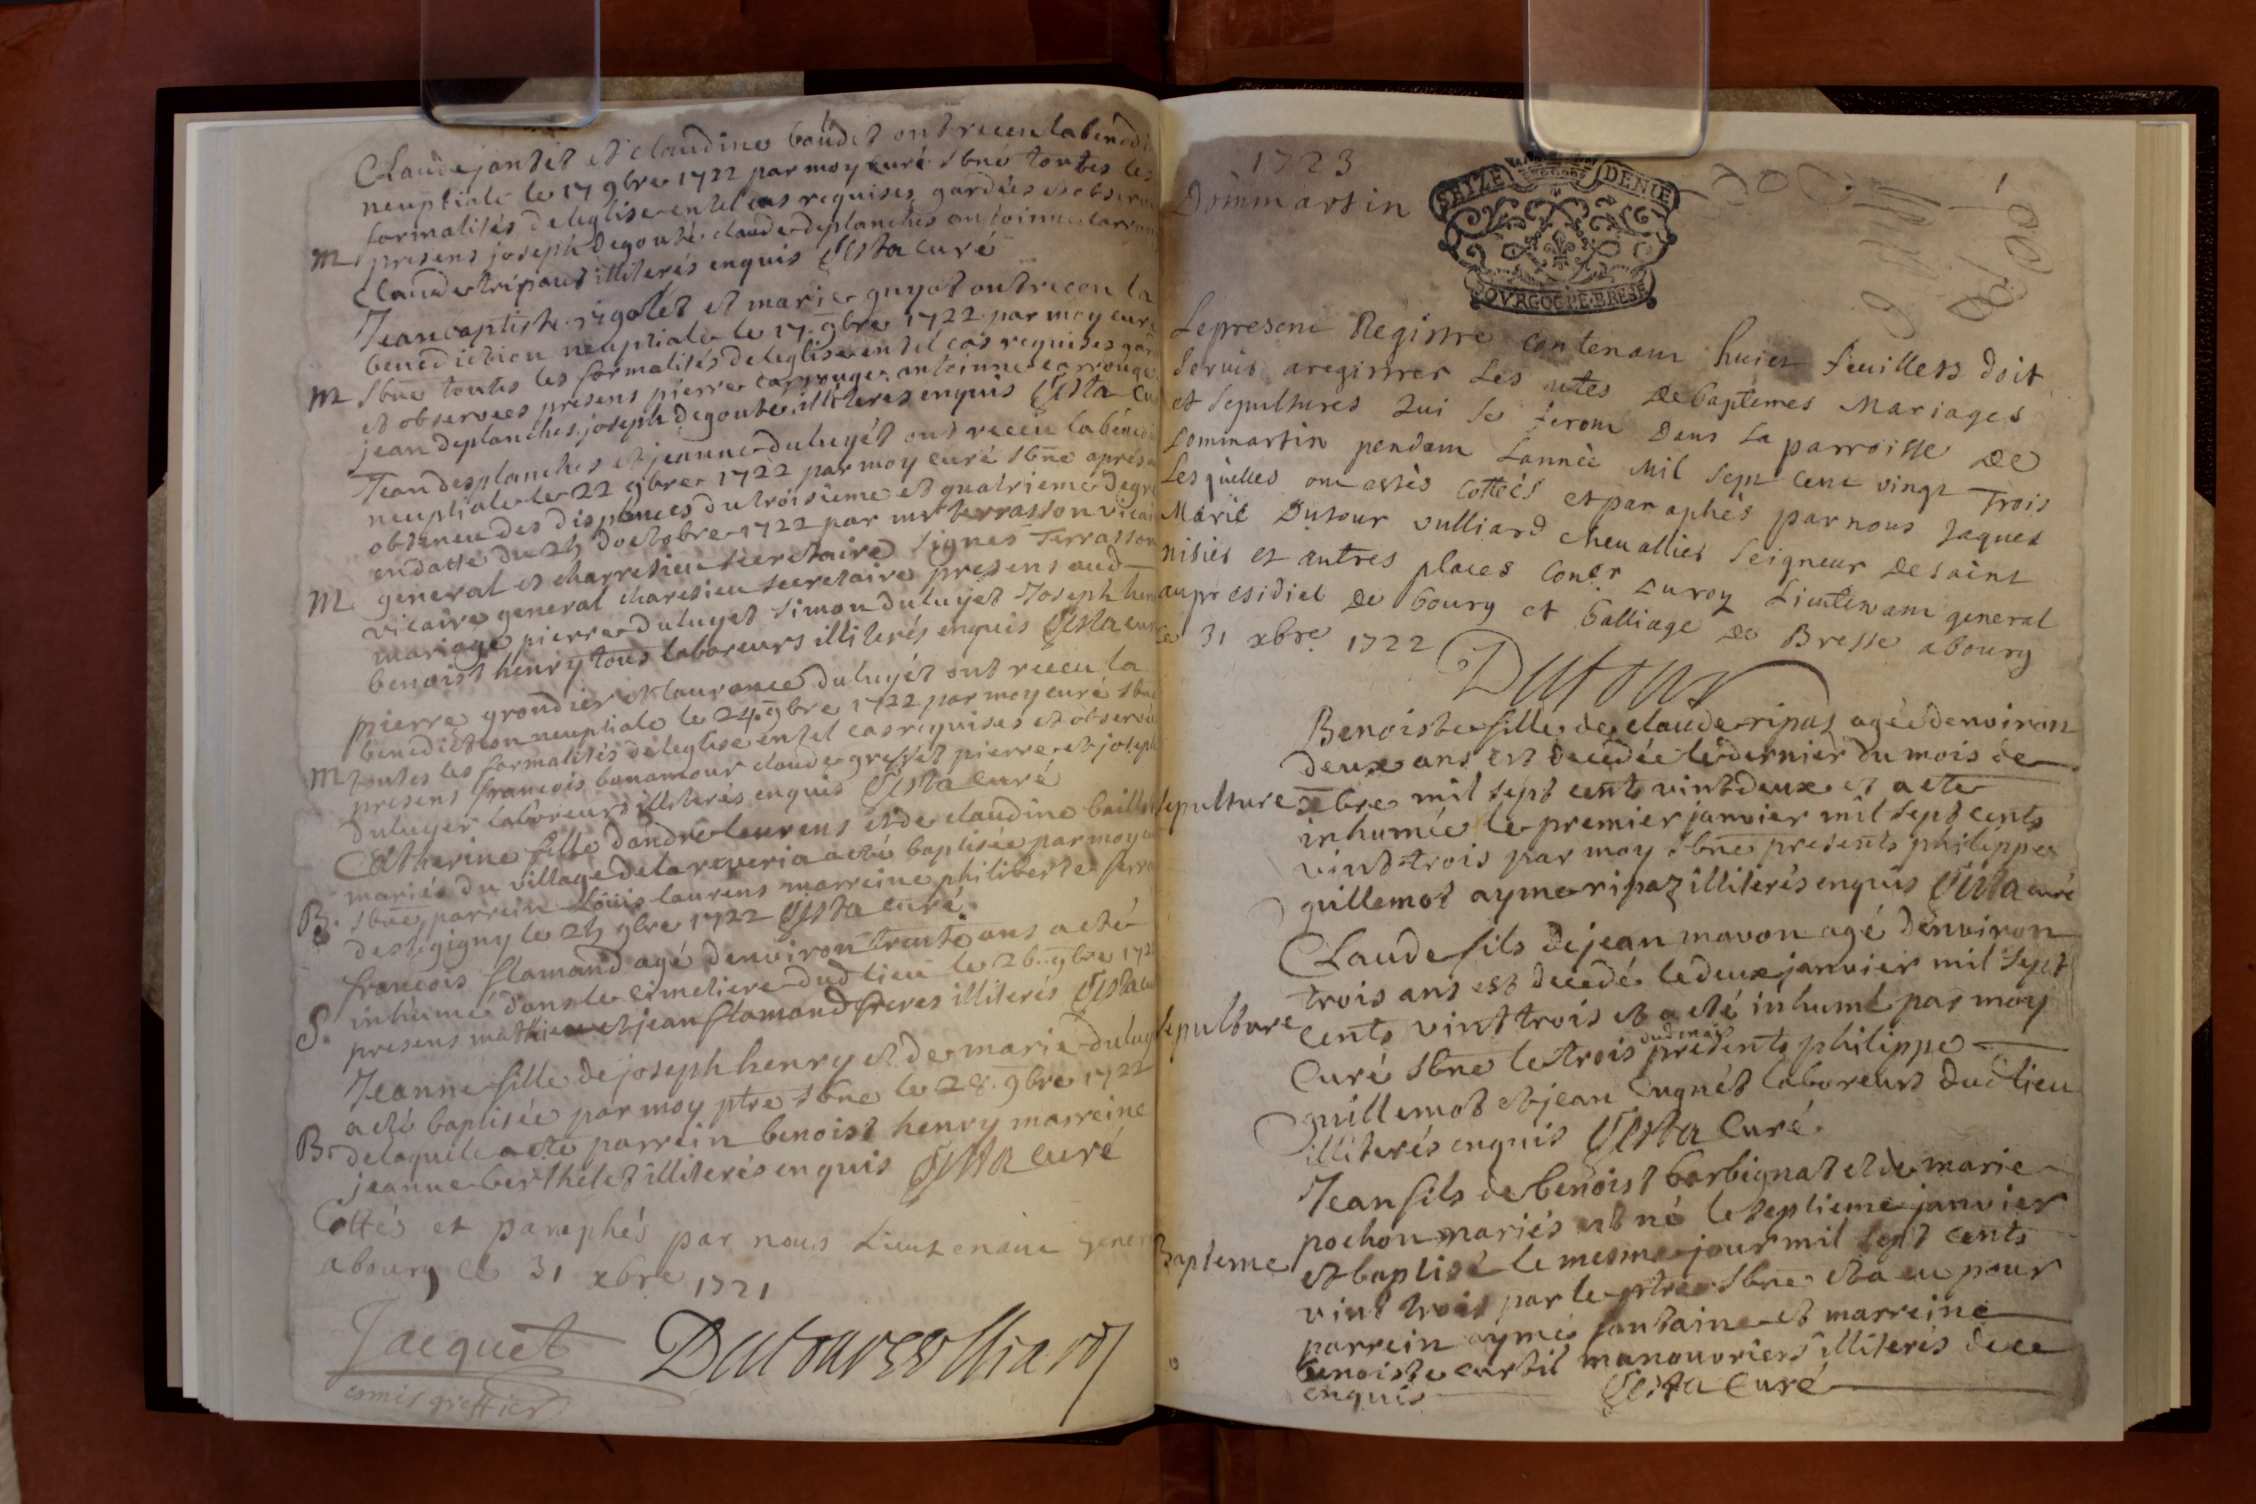 Claude jantet et claudine boudet ont receu la benedi
neuptiale le 17 9bre 1722 par moy curé sbné toutes les
formalités de leglise en tel cas requises gardées et observ
M presens joseph degouté claude deplanches antoinne carron
Claude tripout illiterés enquis Gista curé
Jean baptiste rigolet et marie guyot ont receu la
benediction neuptiale le 17 9bre 1722 par moy curé
M sbne toutes les formalités de leglise en tel cas requises gar
et observees presens pierre carronge antoinne carronge
jean deplanches joseph degouté illiterés enquis Gista cu
Jean desplanches et jeanne duluyét ont receu la bénedi
neuptiale le 22 9bre 1722 par moy curé sbne aprés a
obtenu des dispences du troisieme et quatrieme degré
en datte du 25 doctobre 1722 par mr terrasson vicai
general et charresieu secretaire signés Terrasson
M vicaire general charesieu secretaire presens aud
mariage pierre duluyet simon duluyet Joseph hen
benoist henry tous laboreurs illiterés enquis Gista cur
pierre grondier et laurance duluyét ont receu la
benediction neuptiale le 24 9bre 1722 par moy curé sbne
M toutes les formalités de leglise en tel cas requises et observé
presens françois bonamour claude gresset pierre et joseph
duluyer laboreurs illiterés enquis Gista curé
Catherine fille dandré laurens et de claudine baillet
mariés du village de la reveria a eté baptisée par moy cu
B. sbne, parrein Louis laurens marreine philiberte ferra
destigigny le 25 9bre 1722 Gista curé.
françois flamand agé denviron trente ans a eté
inhumé dans le cimetiere dud lieu le 26. 9bre 172
S. presens mathieu et jean flamand freres illiterés Gista cu
Jeanne fille de joseph henry et de marie duluy
a eté baptisée par moy ptre sbne le 28. 9bre 1722
B. de laquelle a eté parrein benoist henry marreine
jeanne berthelet illiterés enquis Gista curé
Cottés et paraphés par nous Lieutenant gener
a bourg ce 31 xbre 1721
Jacquet
comis greffier
Dutour Vulliard
1723
Dommartin
SEIZE DENIE
BOVRGOGNE.BRESE
Le present Registre contenant huict feuillets doit
servir a registrer Les actes De baptemes Mariages
et Sepultures Qui se feront Dans La parroisse De
Dommartin pendant Lannée Mil Sept cent vingt Trois
Lesquelles ont estés cottéés et paraphés par nous Jaques
Marie Dutour vulliard chevallier Seigneur De saint
nisier et autres places Coner Du roy Lieutenant general
au presidiel De bourg et balliage De Bresse a bourg
ce 31 xbre 1722 Dutour
Benoiste fille de claude ripaz agée denviron
deux ans est decedée le dernier du mois de
Sepulture xbre mil sept cents vint deux et a ete
inhumée le premier janvier mil sept cents
vint trois par moy sbne presents philippe
guillemot ayme ripaz illiterés enquis Gista curé
Claude fils de jean mavon agé denviron
trois ans est decedé le deux janvier mil sept
Sepulture cents vint trois et a eté inhumé par moy
Curé sbne le trois dud mois presents philippe
guillemot et jean Cugnét laboreurs dud lieu
illiterés enquis Gista Curé.
Jean fils de benoist barbignat et de marie
pochon mariés est né le septieme janvier
Bapteme et baptisé le mesme jour mil sept cents
vint trois par le ptre sbne et a eu pour
parrein aymé fontaine et marreine
benoiste curtil manouvriers illiterés de ce
enquis Gista Curé